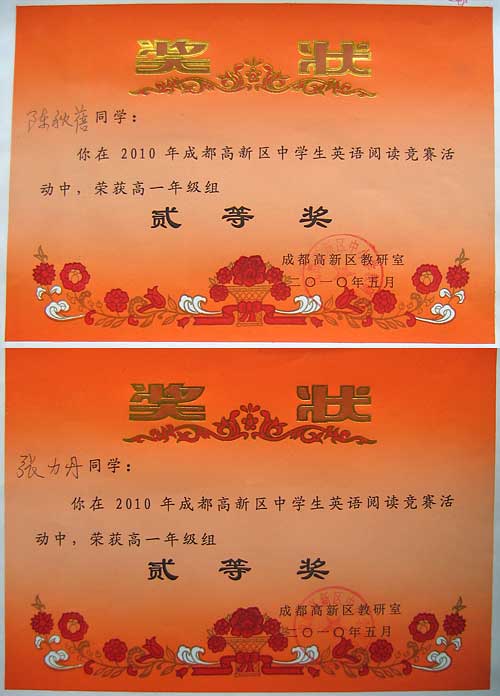 奖 状
陈秋蓓同学：
你在 2010 年成都高新区中学生英语阅读竞赛活
动中，荣获高一年级组
贰 等 奖
成都高新区教研室
二〇一〇年五月
奖 状
张力丹同学：
你在 2010 年成都高新区中学生英语阅读竞赛活
动中，荣获高一年级组
贰 等 奖
成都高新区教研室
二〇一〇年五月